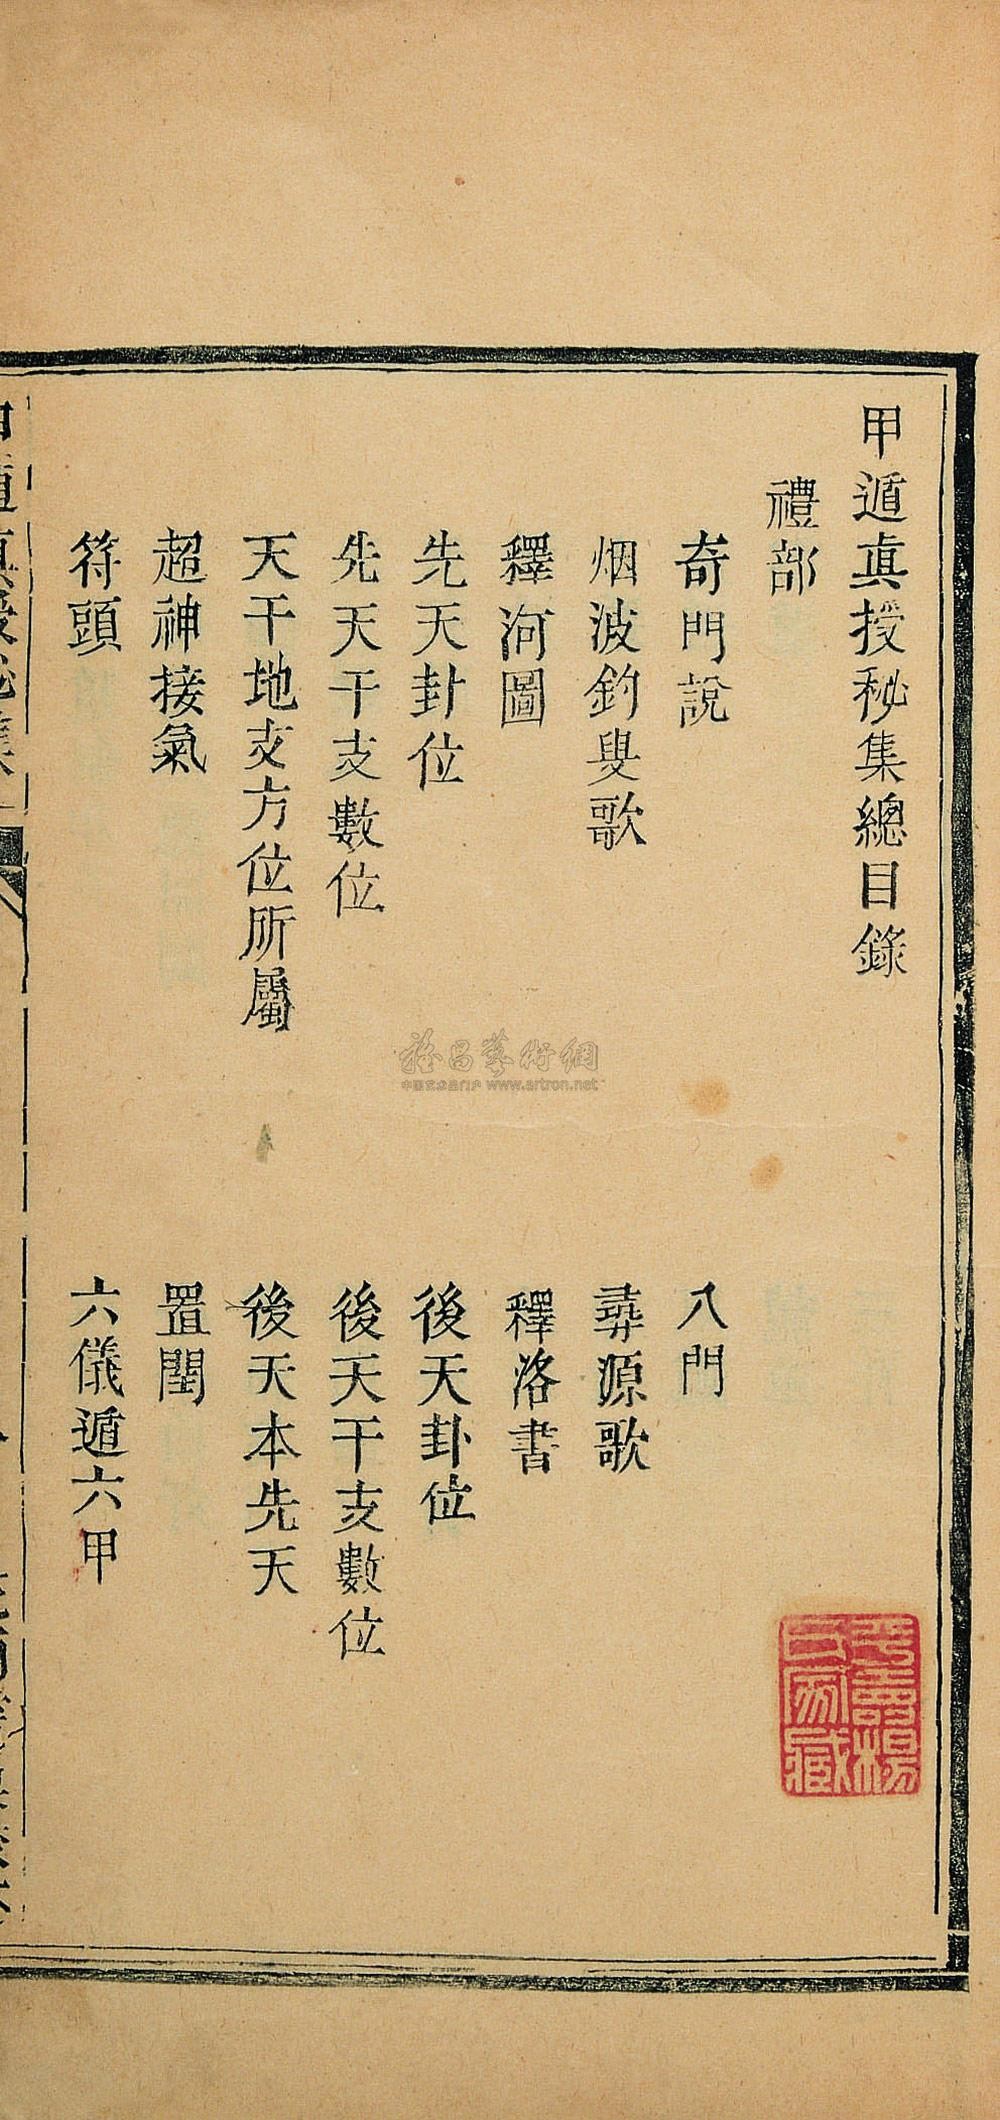 甲遁真授秘集總目錄
禮部
奇門說
八門
烟波釣叟歌
彝源歌
釋河圖
釋洛書
先天卦位
後天卦位
先天干支數位
後天干支數位
天干地支方位所屬
後天本先天
超神接氣
置閏
符頭
六儀遁六甲
雅昌藝術網
中国艺术品门户 www.artron.net